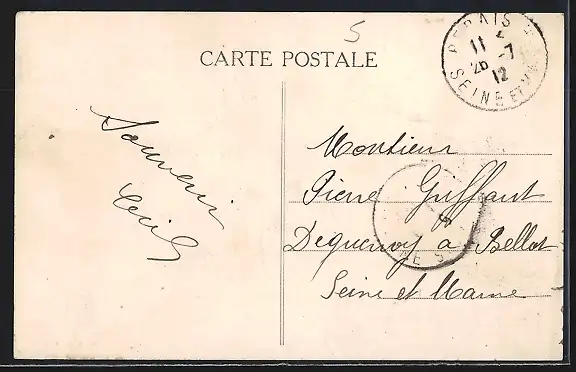 5
CARTE POSTALE
11
26 -7
12
SEINE ET
Souvenir
Cécile
Monsieur
Pierre Guffaut
à Bellot
Seine et Marne